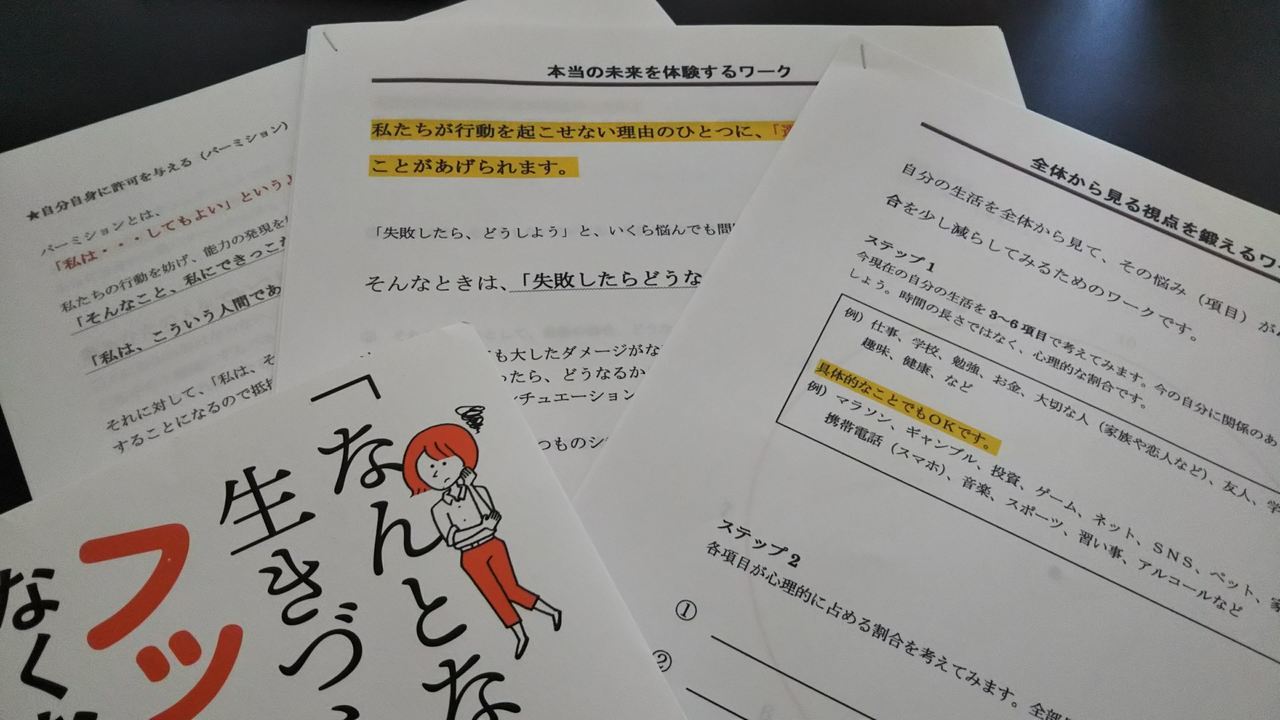 ★自分自身に許可を与える（パーミション）
パーミションとは、
「私は・・・してもよい」という
私たちの行動を妨げ、能力の発現を
「そんなこと、私にできっこ
「私は、こういう人間であ
それに対して、「私は、そ
することになるので抵
本当の未来を体験するワーク
私たちが行動を起こせない理由のひとつに、「
ことがあげられます。
「失敗したら、どうしよう」と、いくら悩んでも問
そんなときは、「失敗したらどうな
も大したダメージがな
ったら、どうなるか
ンチュエーション
つものシ
全体から見る視点を鍛えるワ
自分の生活を全体から見て、その悩み（項目）が
合を少し減らしてみるためのワークです。
ステップ1
今現在の自分の生活を3～6項目で考えてみます。今の自分に関係のあ
しょう。時間の長さではなく、心理的な割合です。
例）仕事、学校、勉強、お金、大切な人（家族や恋人など）、友人、学
趣味、健康、など
具体的なことでもOKです。
例）マラソン、ギャンブル、投資、ゲーム、ネット、SNS、ペット、家
携帯電話（スマホ）、音楽、スポーツ、習い事、アルコールなど
ステップ2
各項目が心理的に占める割合を考えてみます。全部
①
②
「なんとな
生きづ
フッ
なく